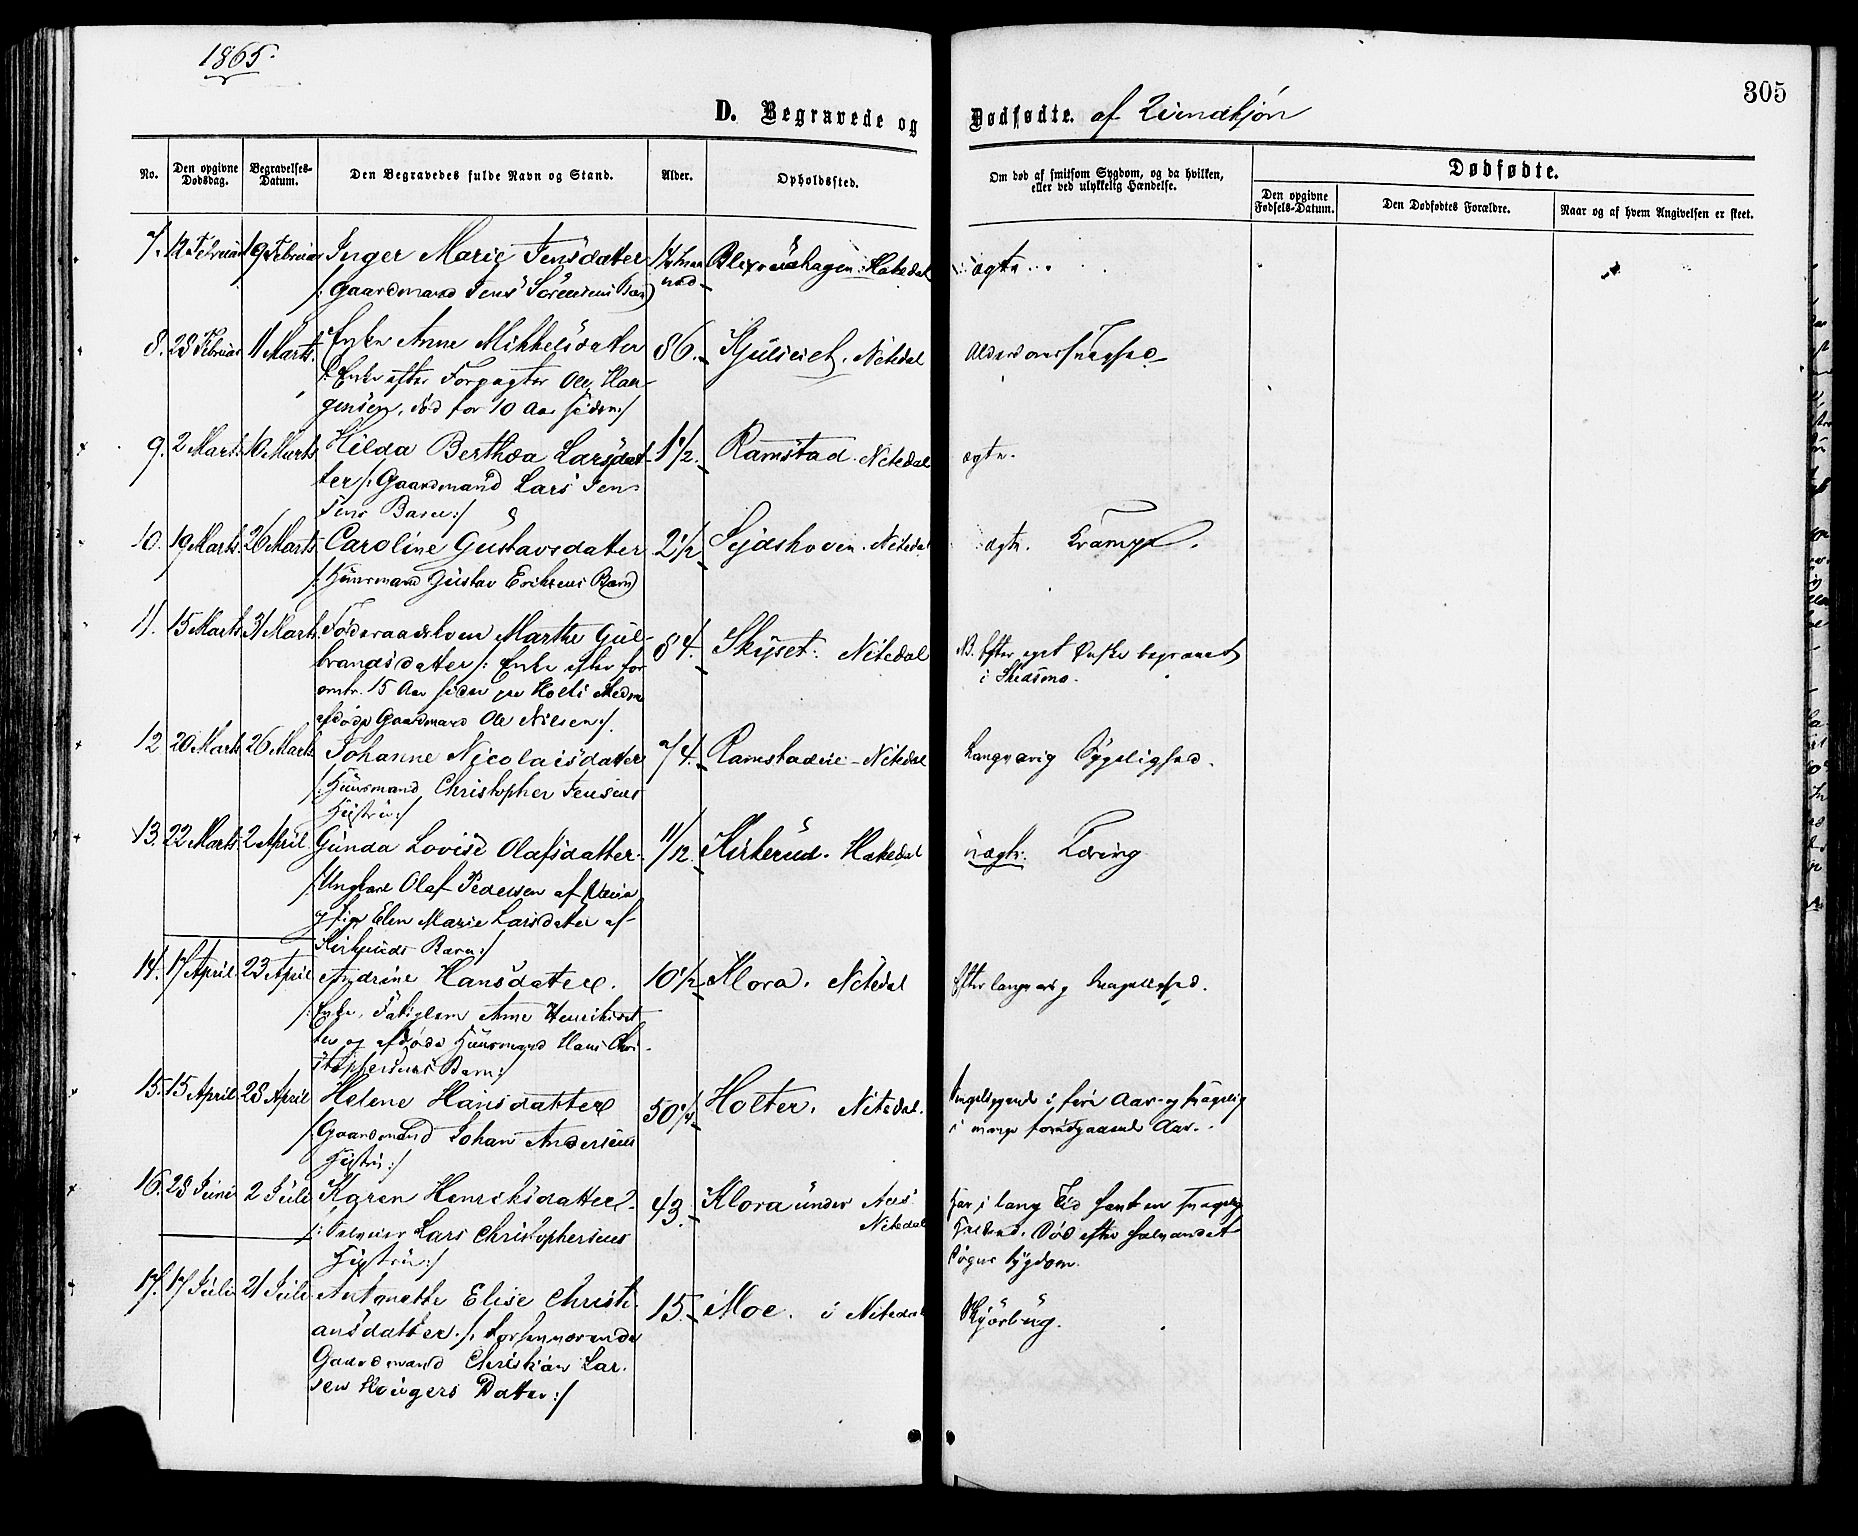 1865.
305
D. Begravede og Dødfødte. af Qvindkjøn
No. Den opgivne Dødsdag. Begravelses-Datum. Den Begravedes fulde Navn og Stand. Alder. Opholdssted. Om død af smitsom Sygdom, og da hvilken, eller ved ulykkelig Hændelse. Dødfødte.
Den opgivne Fødsels-Datum. Den Dødfødtes Forældre. Naar og af hvem Angivelsen er skeet.
7. 12 Februar 19 Februar Inger Marie Jensdatter Hakedal ægte.
/: Gaardmand Jens Sörensens Barn
8. 23 Februar 11 Marts. Enke Anne Mikkelsdatter 86. Kjulseiet. Nitedal Alderdomssvaghed
/: Enke efter Forpagter Ole Haa-
gensen, död for 10 Aar siden:/
9. 2 Marts 10 Marts Hilda Berthea Larsdat- 1 1/2. Ramstad. Nitedal ægte.
ter /: Gaardmand Lars Jen-
sens Barn:/
10. 19 Marts. 26 Marts. Caroline Gustavsdatter 2 1/2 Sejdskoven. Nitedal ægte. Krampe.
/: Huusmand Gustav Eriksens Barn
11. 15 Marts 31 Marts. Föderaadskone Marthe Gul- 84. Skyset. Nitedal NB. Efter eget Ønske begravet
brandsdatter /: Enke efter for i Skedsmo.
omtr. 15 Aar siden paa Holti Skedsmo
afdöde Gaardmand Ole Nilsen:/
12 20 Marts 26 Marts Johanne Nicolaisdatter 74. Ramstadeie - Nitedal Langvarig Sygelighed.
/: Huusmand Christopher Jensens
Hustru:/
13. 22 Marts 2 April Gunda Lovise Olafsdatter 11/12. Kirkerud. Hakedal uægte. Tæring
/: Ungkarl Olaf Pedersen af
og Pige Elen Marie Larsdatter af
Kirkeruds Barn:/
14. 17 April. 23 April Andrine Hansdatter. 10 1/2 Klora. Nitedal Efter langvarig Svagelighed.
/: Enke, Anne Henriksdat-
ter og afdöde Huusmand Hans Chri-
stophersens Barn:/
15. 15 April 23 April Helene Hansdatter 50 1/4 Holter. Nitedal. i fire Aar og svagelig
/: Gaardmand Johan Andersens i mange foregaaende Aar.
Hustru:/
16. 28 Juni 2 Juli Karen Henriksdatter. 43. Klora under Aas Har i lang Tid havt en svagelig
/: Lars Christophersens Nitedal Helbred. Död efter halvandet
Hustru:/ Døgns Sygdom.
17. 17 Juli 21 Juli Antonette Elise Christi- 15. Moe. i Nitedal Skjörbug.
ansdatter. /: Forhenværende
Gaardmand Christian Lar-
sen Haugers Datter:/